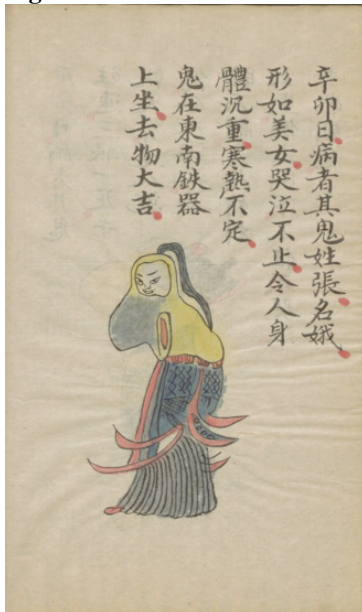 辛卯日病者其鬼姓張名娥
形如美女哭泣不止令人身
體沉重寒熱不定
鬼在東南鉄器
上坐去物大吉